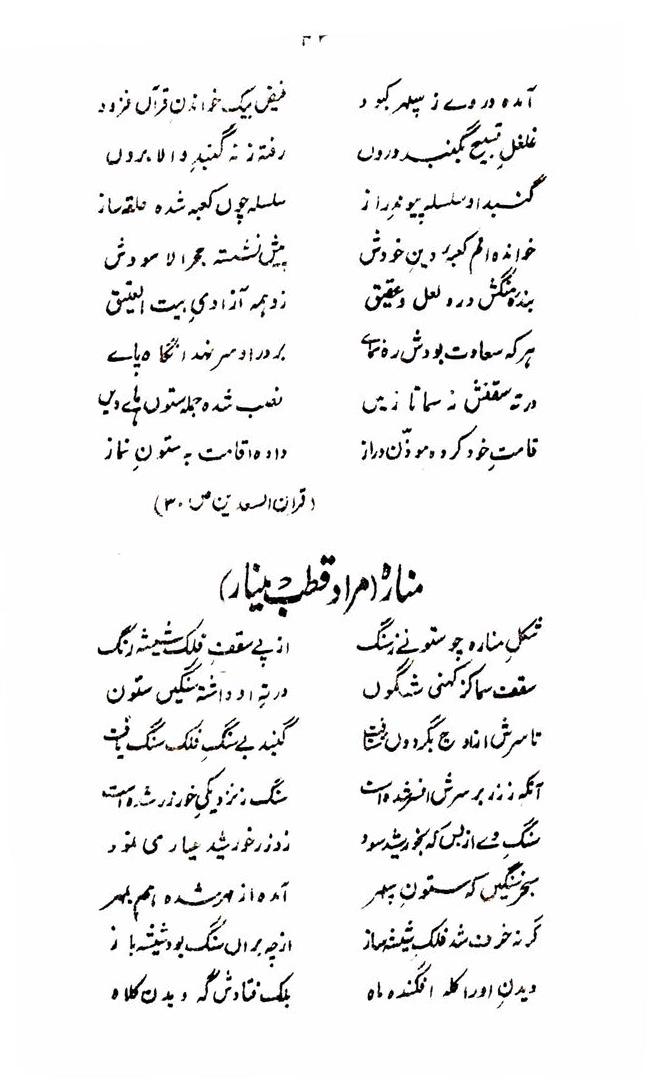 آمده در وے ز سپہر کبود فیض بیک خواندنِ قرآں فزود
غلغلِ تسبیح بگنبد دروں رفتہ ز نہ گنبدِ والا بروں
گنبد او سلسلہ پیوندِ راز سلسلہ چوں کعبہ شدہ حلقہ ساز
خواندہ امم کعبۂ دینِ خودش پیش نشستہ حجر الاسودش
بندۂ سنگش در و لعل و عقیق زد ہمہ آزادیِ بیت العتیق
ہر کہ سعادت بودش رہ نماے بر در او سر نہد آنگاہ پاے
در تہ سقفش ز سما تا زمیں نصب شدہ جملہ ستوں ہاے دیں
قامتِ خود کردہ موذّن دراز دادہ اقامت بہ ستونِ نماز
(قران السعدین ص ۳۰)
منارہ (مراد قطب مینار)
شکلِ منارہ چو ستونے ز سنگ از پے سقفِ فلک شیشہ رنگ
سقف سما کز کہنی شد نگوں در تہِ او داشتہ سنگیں ستون
تا سرش از اوج بگردوں شتافت گنبد بے سنگِ فلک سنگ یافت
آنکہ ز زر بر سرش افسر شدہ است سنگ ز نزدیکیِ خور زر شدہ است
سنگِ وے از بس کہ بخورشید سود زد زر خورشید عیاری نمود
سنگیں کہ ستونِ سپہر آمدہ از مہر شدہ ہم بمہر
گر نہ خرف شد فلکِ شیشہ ساز از چہ براں سنگ بود شیشہ باز
دیدنِ او را کلہ افگندہ ماہ بلک فتادش گہ دیدن کلاہ